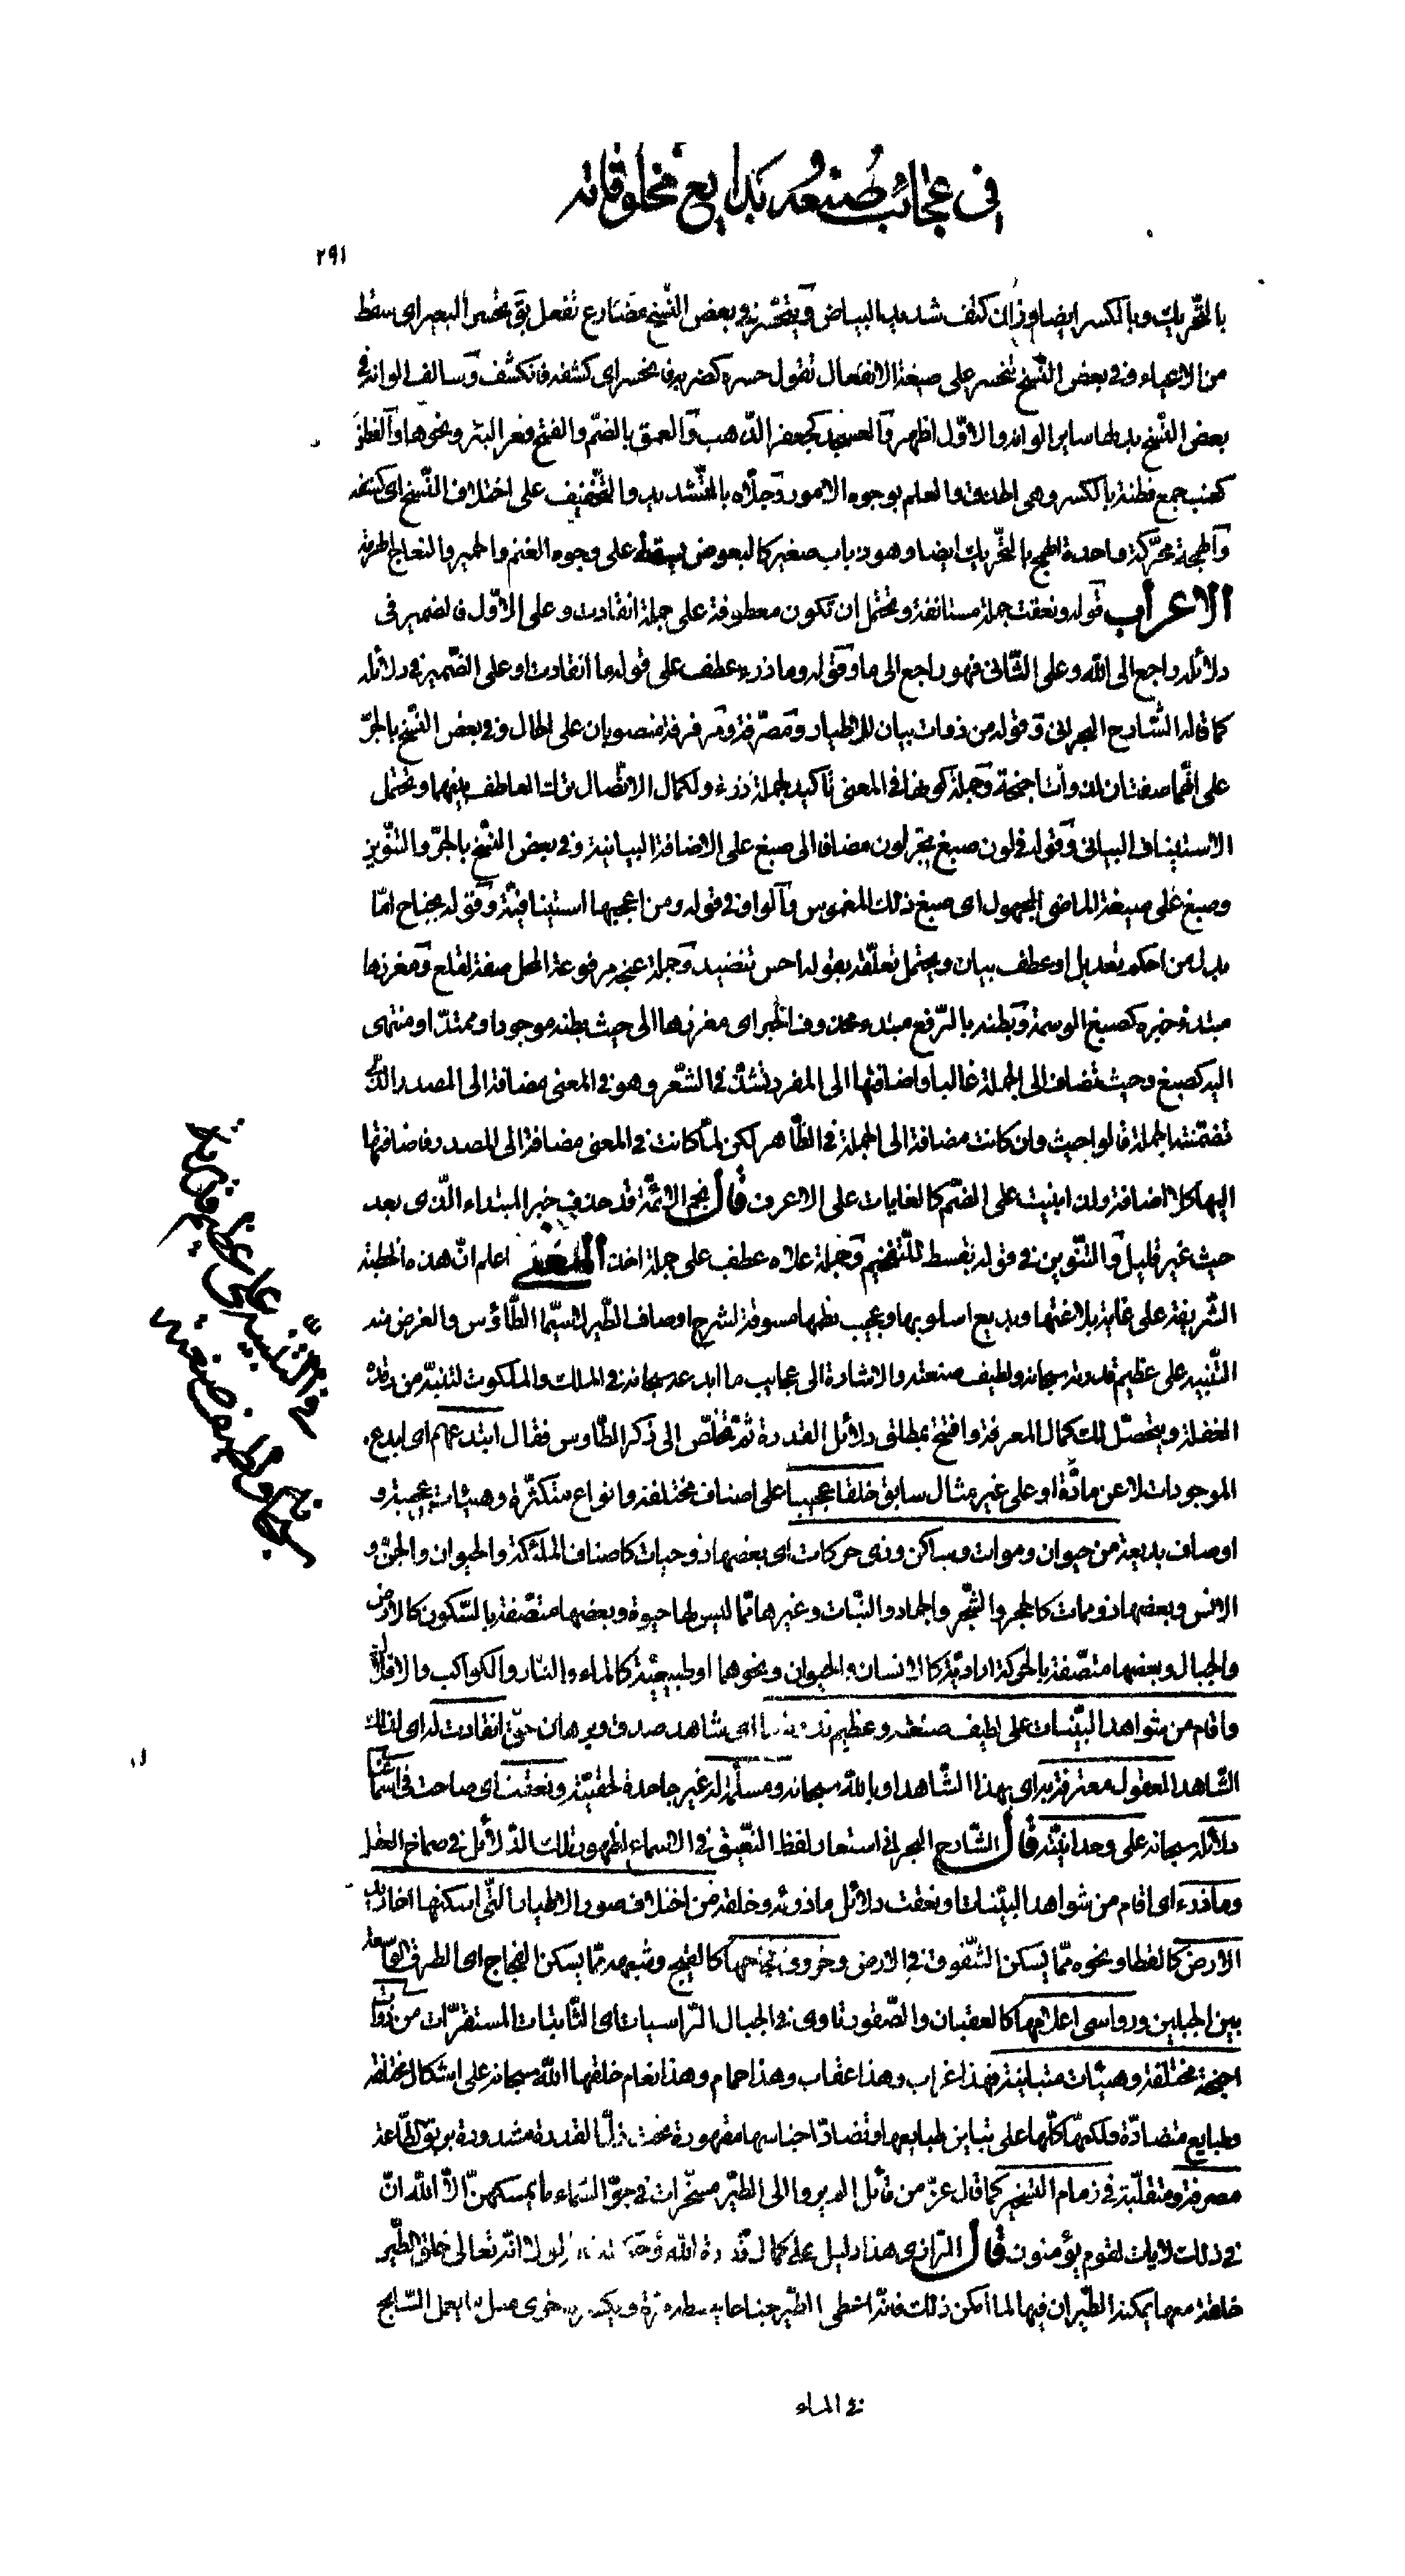 فى عجائب صنعه وبدايع مخلوقاته
٢٩١
بالتّحريك وبالكسر ايضا وزان كتف شديد البياض ويتحسّر فى بعض النّسخ مضارع تفعل يق تحسّر البعير اى سقط
من الاعياء وفى بعض النّسخ تنحسر على صيغة الانفعال تقول حسره كضربه فانحسر اى كشفه فانكشف وسالف الوانه فى
بعض النّسخ بدلها ساير الوانه والاوّل اظهر والعسجد كجعفر الذّهب والعمق بالضمّ والفتح وقعر البئر ونحوها والفطن
كعنب جمع فطنة بالكسر وهى الحذق والعلم بوجوه الامور وجلّاه بالتّشديد والتّخفيف على اختلاف النّسخ اى كشفه
والهمجة محرّكة واحدة الهمج بالتّحريك ايضا وهو ذباب صغير كالبعوض يسقط على وجوه الغنم والحمير والنعاج الهرمة
الاعراب قوله ونعقت جملة مستانفة وتحتمل ان تكون معطوفة على جملة انقادت وعلى الاوّل فالضمير فى
دلائله راجع الى اللّه وعلى الثّانى فهو راجع الى ما وقوله وما ذرء عطف على قوله ما انقادت او على الضّمير فى دلائله
كما قاله الشّارح البحرانى وقوله من ذوات بيان للاطيار ومصرّفة ومرفرفة منصوبان على الحال وفى بعض النّسخ بالجرّ
على انّهما صفتان لذوات اجنحة وجملة كوّنها فى المعنى تاكيد لجملة ذرء ولكمال الاتّصال ترك العاطف بينهما وتحتمل
الاستيناف البيانى وقوله فى لون صبغ بجرّ لون مضافا الى صبغ على الاضافة البيانية وفى بعض النّسخ بالجرّ والتنّوين
وصبغ على صيغة الماضى المجهول اى صبغ ذلك المغموس والواو فى قوله ومن اعجبها استينافيّة وقوله بجناح امّا
بدل من احكم تعديل او عطف بيان ويحتمل تعلّقه بقوله احسن تنضيد وجملة عنجه مرفوعة المحل صفة لقلع ومغرزها
مبتدء وخبره كصبغ الوسمة وبطنه بالرّفع مبتدء محذوف الخبر اى مغرزها الى حيث بطنه موجودا وممتدّ او منتهى
اليه كصبغ وحيث تضاف الى الجملة غالبا واضافتها الى المفرد تشذّ فى الشّعر وهو فى المعنى مضافة الى المصدر الّذى
تضمّنته الجملة قالوا حيث وان كانت مضافة الى الجملة فى الظّاهر لكن لمّا كانت فى المعنى مضافة الى المصدر فاضافتها
اليها كلا اضافة ولذا بنيت على الضّم كالغايات على الاعرف قال نجم الائمّة قد حذف خبر المبتداء الّذى بعد
حيث غير قليل والتنّوين فى قوله بقسط للتّفخيم وجملة علاه عطف على جملة اخذ المعنى اعلم انّ هذه الخطبة
الشّريفة على غاية بلاغتها وبديع اسلوبها وعجيب نظمها مسوقة لشرح اوصاف الطّير لا سيّما الطّاوس والغرض منه
التّنبيه على عظيم قدرته سبحانه ولطيف صنعته والاشارة الى عجايب ما ابدعه سبحانه فى الملك والملكوت لتتنبّه من رقدة
الغفلة ويتحصّل لك كمال المعرفة وافتتح بمطلق دلائل القدرة ثمّ تخلّص الى ذكر الطّاوس فقال ابتدعهم اى ابدع
الموجودات لا عن مادّة او على غير مثال سابق خلقا عجيبا على اصناف مختلفة وانواع متكثّرة وهيئات عجيبة و
اوصاف بديعة من حيوان وموات وساكن وذى حركات اى بعضها ذو حيات كاصناف الملئكة والحيوان والجنّ و
الانس وبعضها ذو ممات كالحجر والشّجر والجماد والنّبات وغيرها ممّا ليس لها حيوة وبعضها متّصفة بالسّكون كالارض
والجبال وبعضها متّصفة بالحركة اراديّة كالانسان والحيوان ونحوهما او طبيعيّة كالماء والنّار والكواكب والافلاك
واقام من شواهد البيّنات على لطيف صنعته وعظيم قدرته ما اى شاهد صدق وبرهان حقّ انقادت له اى لذلك
الشّاهد العقول معترفة به اى بهذا الشّاهد او باللّه سبحانه ومسلّمة له غير جاحدة لحقيّته ونعقت اى صاحت فى اسماعنا
دلائله سبحانه على وحدانيّته قال الشّارح البحرانى استعار لفظ النّعيق فى الاسماع لظهور تلك الدّلائل فى صماخ العقل
وما ذرء اى اقام من شواهد البيّنات او نعقت دلائل ما ذرئه وخلقه من اختلاف صور الاطيار الّتى اسكنها اخاديد
الارض كالقطا ونحوه ممّا يسكن الشّقوق فى الارض وخروق فجاجها كالقبج وشبهه ممّا يسكن الفجاج اى الطرق الواسعة
بين الجبلين ورواسى اعلامها كالعقبان والصّقور تاوى فى الجبال الرّاسيات اى الثّابتات المستقرّات من ذوات
اجنحة مختلفة وهيئات متباينة فهذا غراب وهذا عقاب وهذا حمام وهذا نعام خلقها اللّه سبحانه على اشكال مختلفة
وطبايع متضادّة ولكنّها كلّها على تباين طبايعها وتضادّ اجناسها مقهورة تحت ذلّ القدرة مشدودة بربق الطّاعة
مصرفة ومتقلّبة فى زمام التسّخير كما قال عزّ من قائل الم يروا الى الطّير مسخّرات فى جوّ السّماء ما يمسكهنّ الّا اللّه انّ
فى ذلك لايات لقوم يؤمنون قال الرّازى هذا دليل على كمال قدرة اللّه وحكمته فلولا انّه تعالى خلق الطّير
خلقة معها يمكنه الطّيران فيها لما امكن ذلك فانّه اعطى الطّير جناحا يبسطه مرّة ويكسره اخرى مثل ما يعمل السّابح
فى الماء